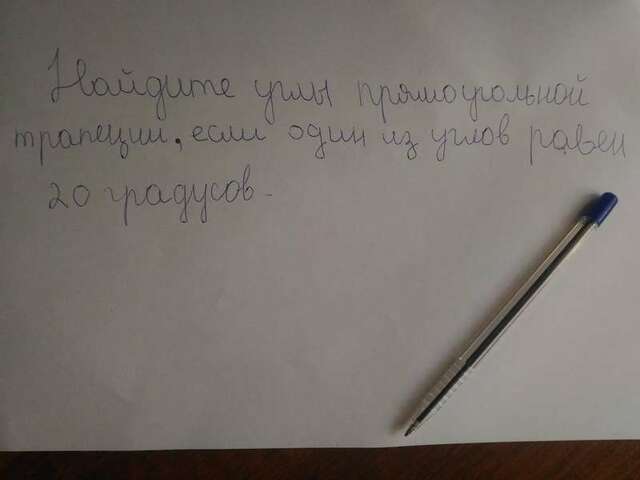 Найдите углы прямоугольной
трапеции, если один из углов равен
20 градусов.